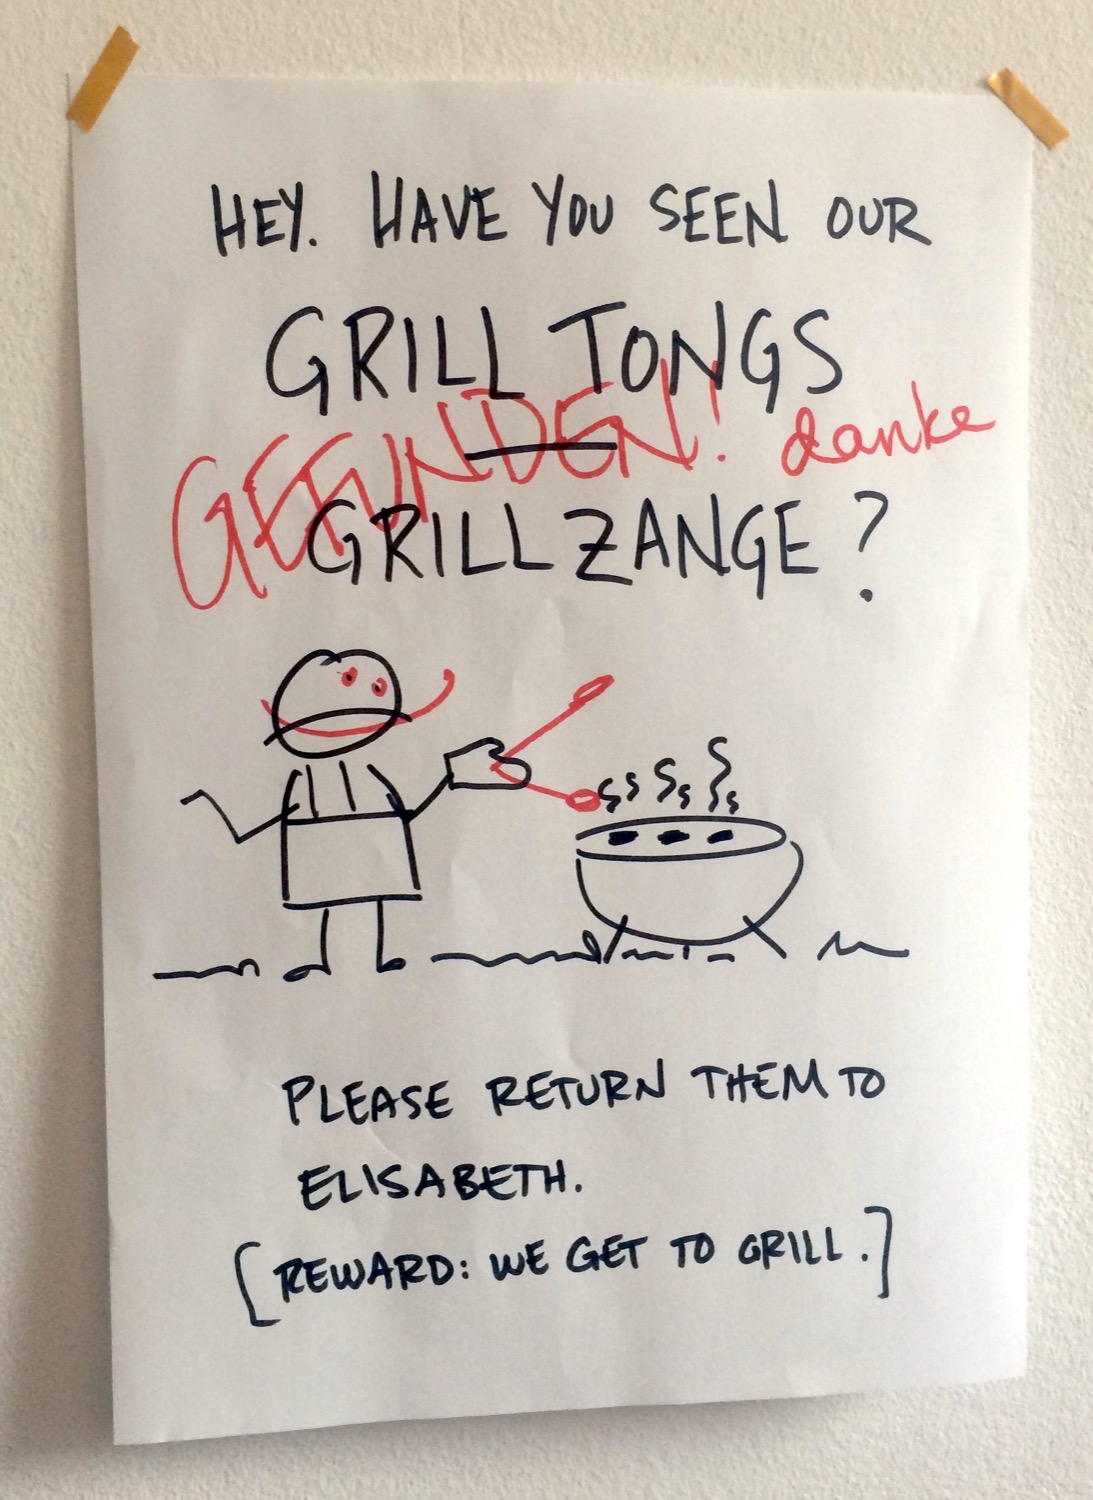 HEY. HAVE YOU SEEN OUR
GRILL TONGS
GEFUNDEN! danke
GRILLZANGE?
PLEASE RETURN THEM TO
ELISABETH.
[REWARD: WE GET TO GRILL.]